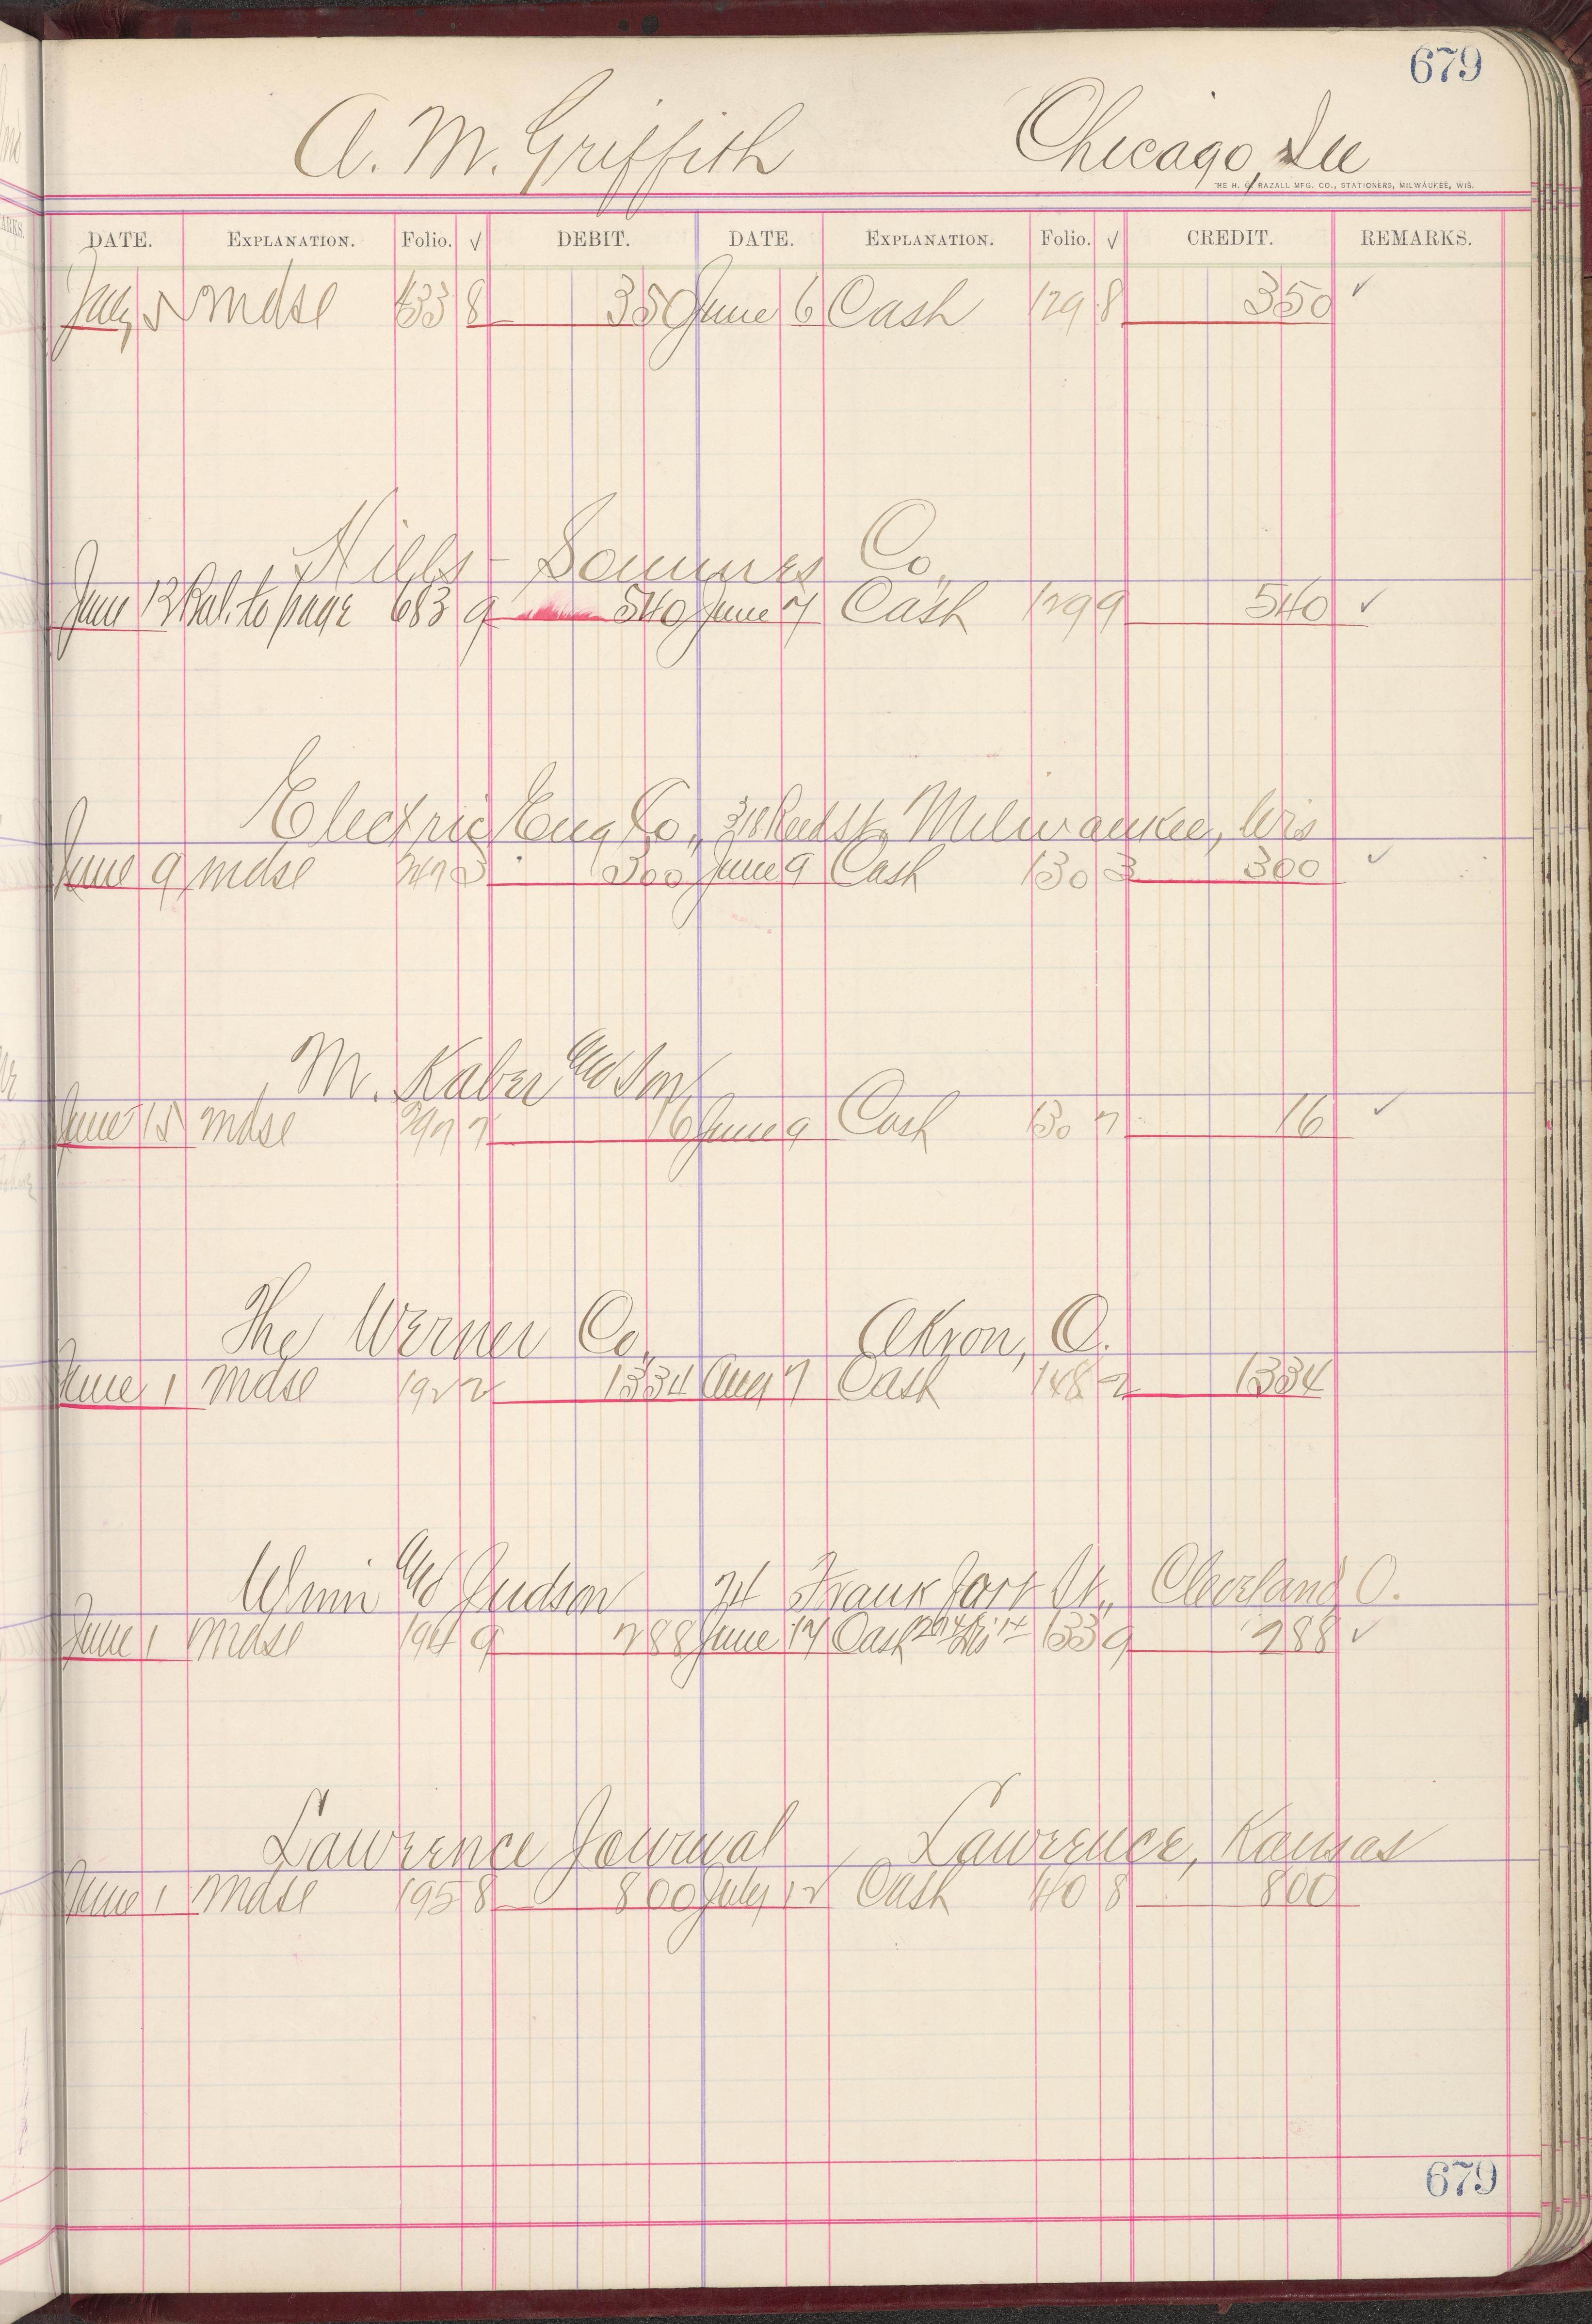 679
A. M. Griffith Chicago, Ill
THE H. G. RAZALL MFG. CO., STATIONERS, MILWAUKEE, WIS.
DATE. EXPLANATION. Folio. √ DEBIT. DATE. EXPLANATION. Folio. √ CREDIT. REMARKS.
July 5 Mdse 433 8 350 June 6 Cash 129 8 350 ✓
Hills - Co.
June 13 Bal. to page 683 9 540 June 7 Cash 129 9 540 ✓
Electric Eng Co., 318 Reed St, Milwaukee, Wis
June 9 Mdse 249 3 300 June 9 Cash 130 3 300 ✓
M. Kaber & Son
June 15 Mdse 297 7 16 June 9 Cash 130 7 16 ✓
The Werner Co. Akron, O.
June 1 Mdse 192 2 1334 Aug 7 Cash 148 2 1334
Winn & Judson 74 Frankfort St., Cleveland O.
June 1 Mdse 194 9 288 June 17 Cash 133 9 288 ✓
Lawrence Journal Lawrence, Kansas
June 1 Mdse 195 8 800 July 12 Cash 140 8 800
679